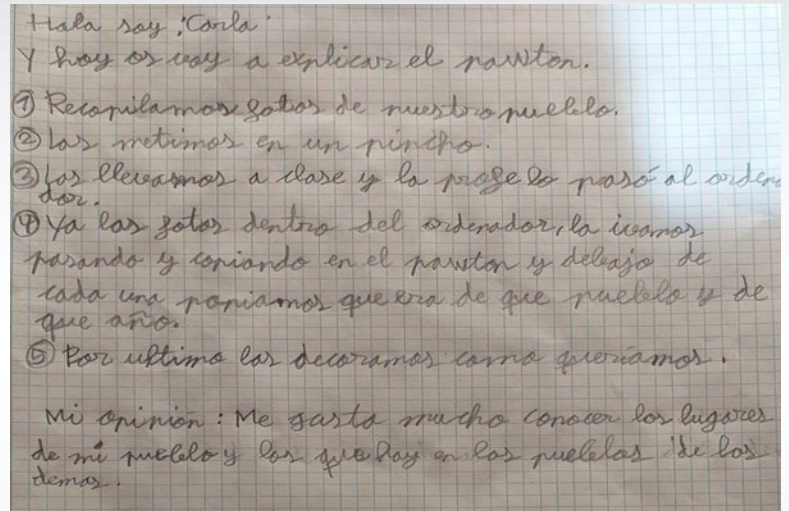 Hola soy ;Carla
Y hoy os voy a explicar el pawton.
① Recopilamos fotos de nuestro pueblo.
② Las metimos en un pincho.
③ Las llevamos a clase y la profe lo pasó al ordena
dor.
④ Ya las fotos dentro del ordenador, la ivamos
pasando y copiando en el pawton y debajo de
cada una poniamos que era de que pueblo y de
que año.
⑤ Por ultimo las decoramos como queríamos.
Mi opinión: Me gusto mucho conocer los lugares
de mi pueblo y los que hay en los pueblos de los
demas.